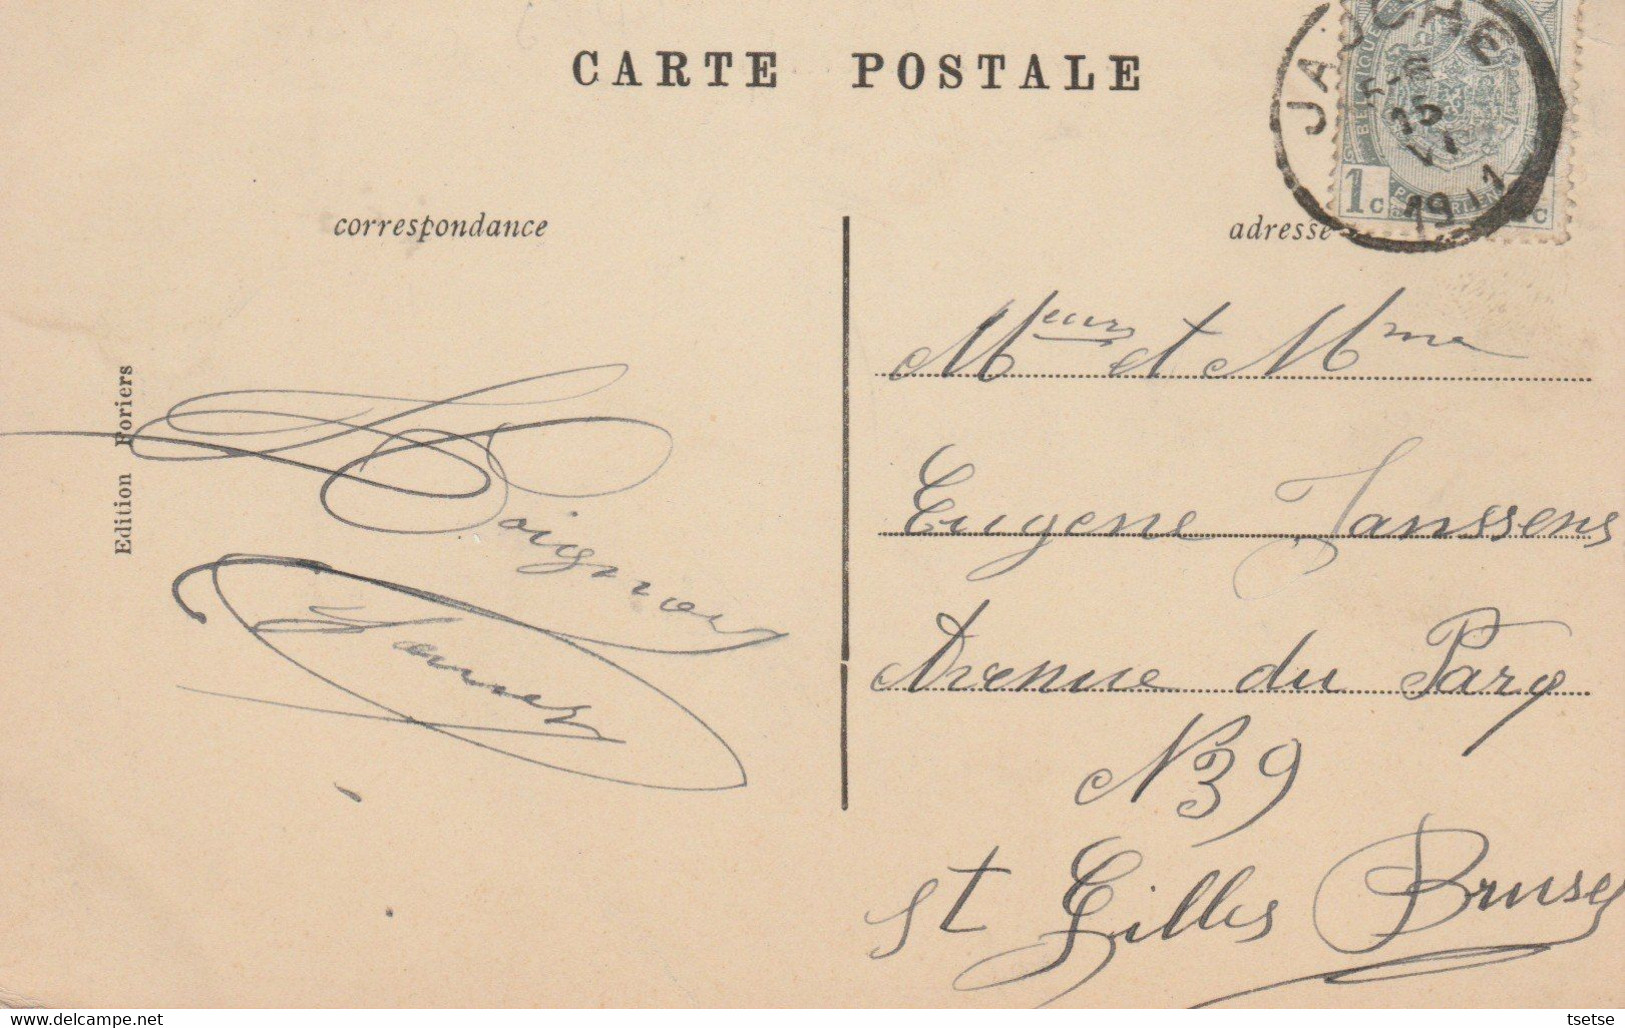 CARTE POSTALE
JAUCHE
15
VI
1911
BELGIQUE
1c
correspondance
adresse
Edition Foriers
Meurs et Mme
Eugene Janssens
Avenue du Parq
N 39
St Gilles Brusel
www.delcampe.net
tsetse